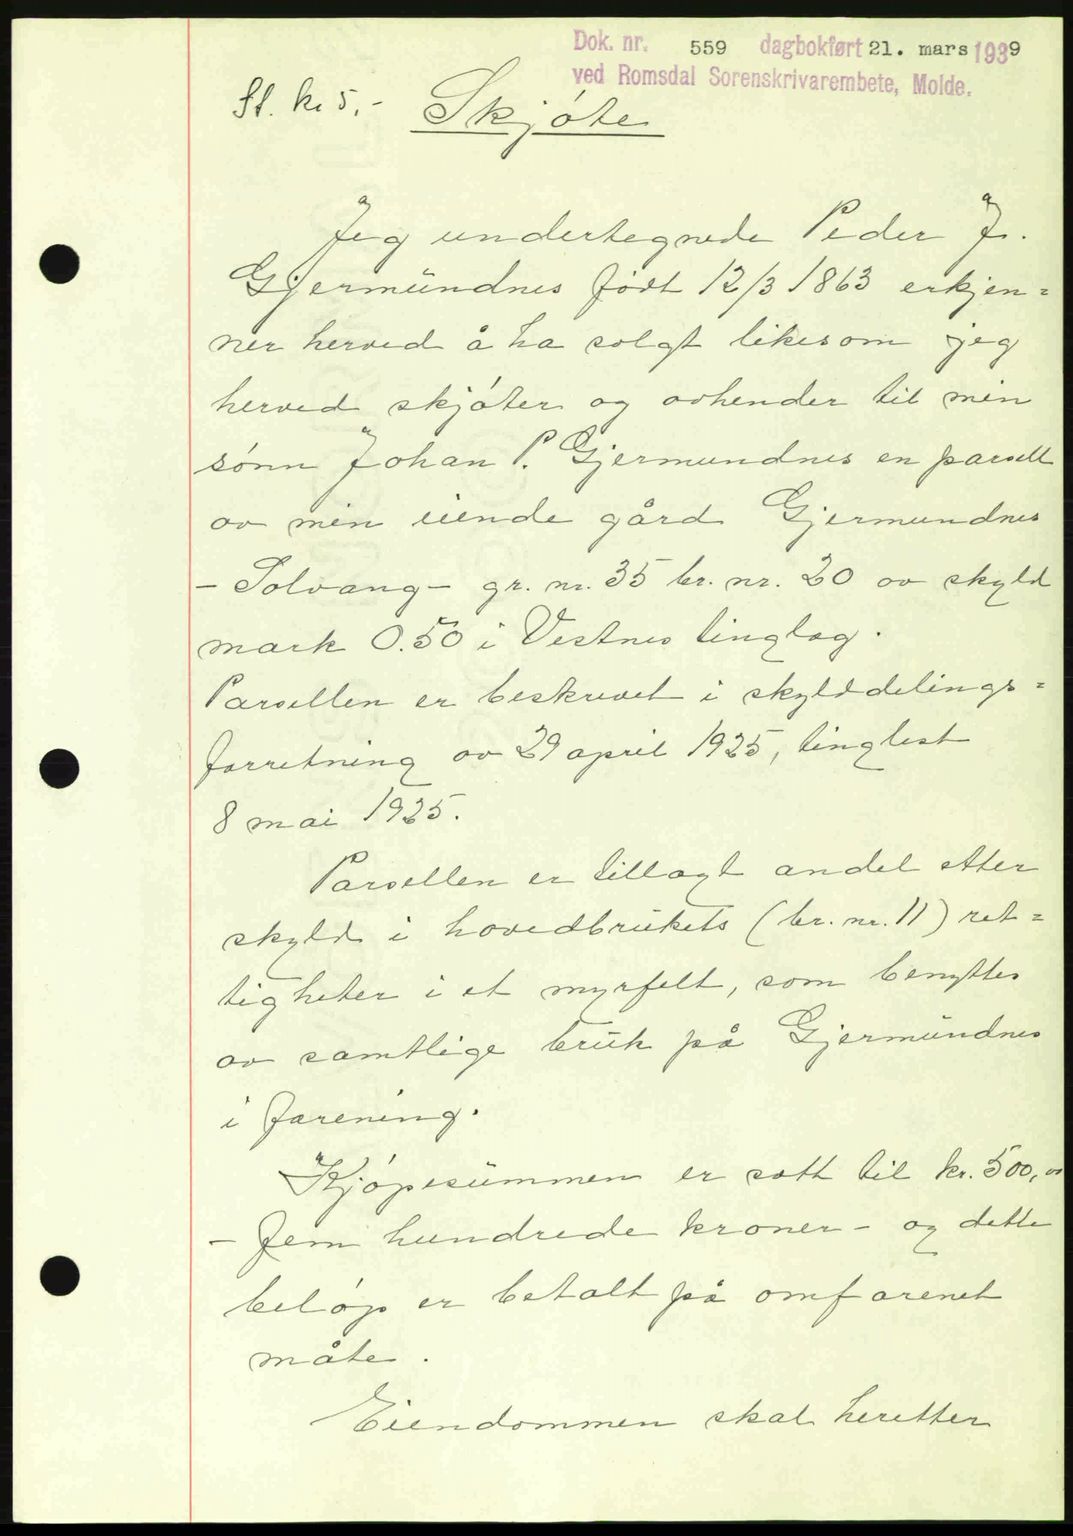 Dok. nr. 559 dagbokført 21. mars 1939
ved Romsdal Sorenskrivarembete, Molde.
St. kr 5,-
Skjóte
Jeg undertegnede Peder J.
Gjermündnes født 12/3 1863 erkjen=
ner herved å ha solgt likesom jeg
herved skjóter og avhender til min
sónn Johan P. Gjermundnes en parsell
av min eiende gård Gjermundnes
- Solvang - gr. nr. 35 br. nr. 20 av skyld
mark 0.50 i Vestnes tinglag.
Parsellen er beskrevet i skylddelings=
forretning av 29 april 1925, tinglest
8 mai 1925.
Parsellen er tillagt andel etter
skyld i hovedbrükets (br. nr. 11) ret=
tigheter i et myrfelt, som benyttes
av samtlige brük på Gjermündnes
i forening.
Kjópesümmen er satt til kr. 500,00
- Fem hundrede kroner - og dette
belóp er betalt på omforenet
måte.
Eiendommen skal heretter